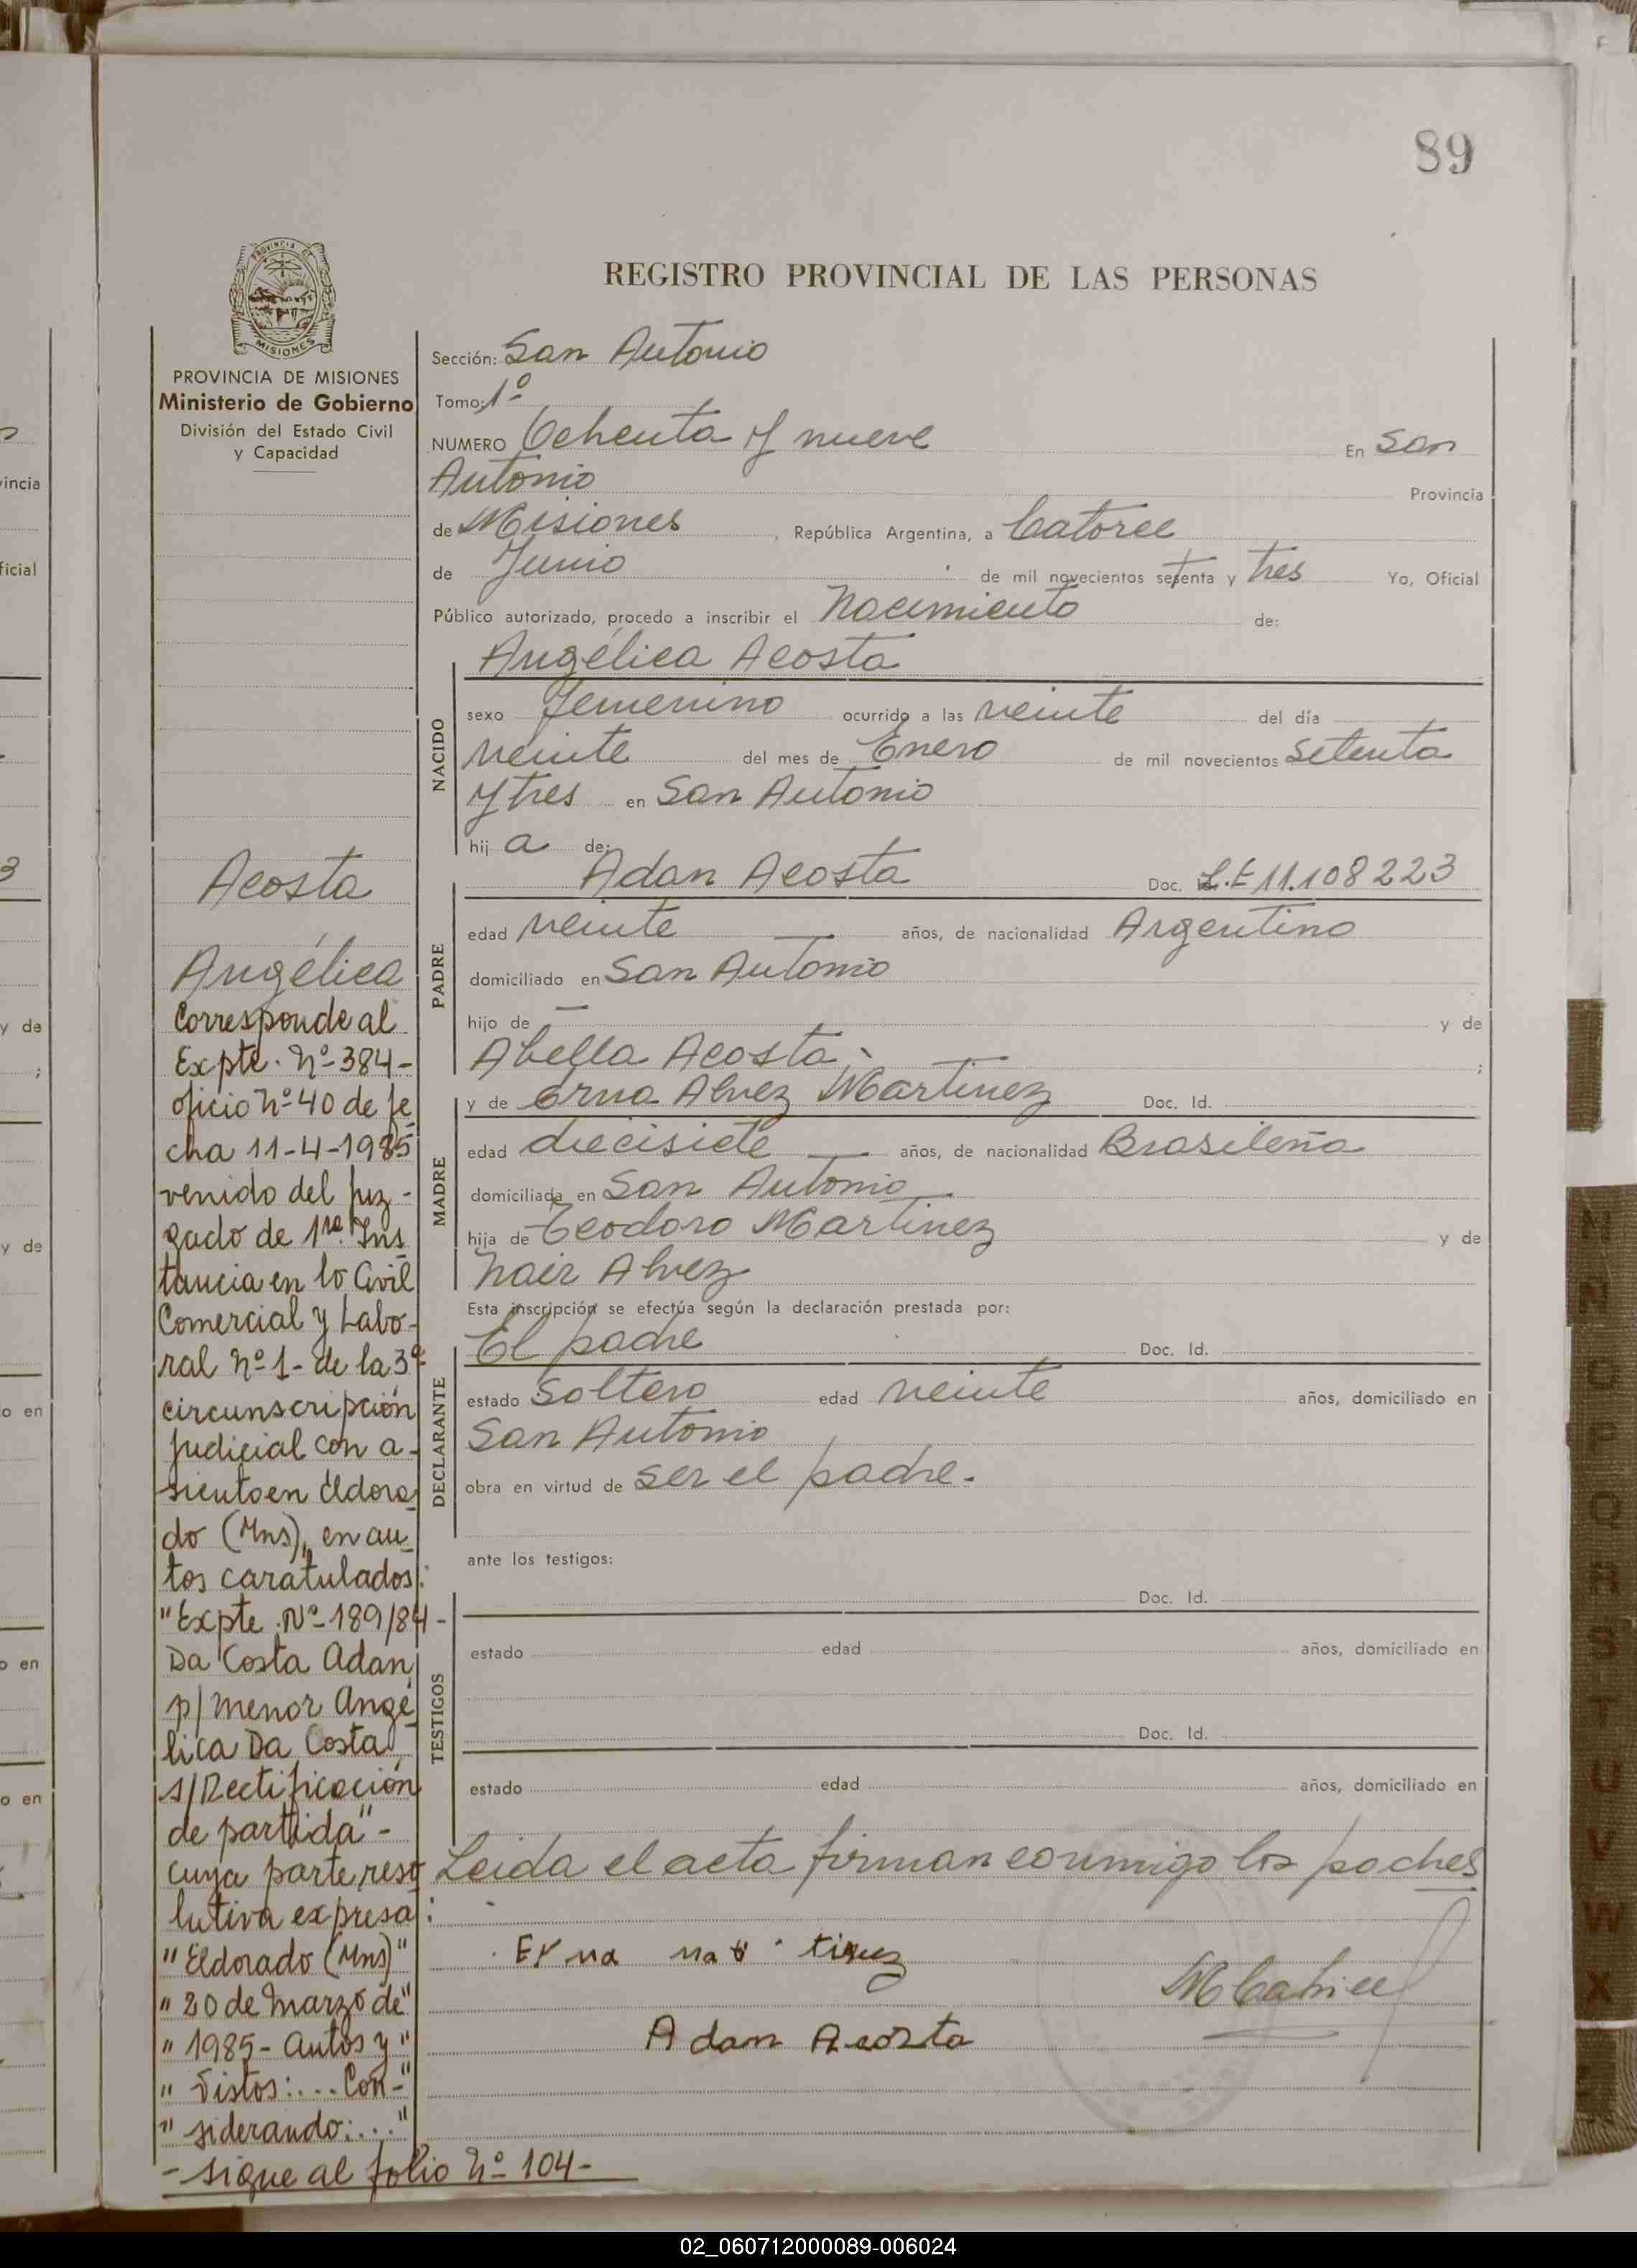 89
REGISTRO PROVINCIAL DE LAS PERSONAS
PROVINCIA DE MISIONES
Ministerio de Gobierno
División del Estado Civil
y Capacidad
Sección: San Antonio
Tomo: 1º
NUMERO Ochenta y nueve En San
Antonio Provincia
de Misiones, República Argentina, a Catorce
de Junio de mil novecientos setenta y tres Yo, Oficial
Público autorizado, procedo a inscribir el Nacimiento de:
Angélica Acosta
NACIDO
sexo femenino ocurrido a las veinte del día
veinte del mes de Enero de mil novecientos setenta
y tres en San Antonio
hij a de:
PADRE
Adan Acosta Doc. L.E 11.108223
edad veinte años, de nacionalidad Argentino
domiciliado en San Antonio
hijo de — y de
Abella Acosta ;
MADRE
y de Erna Alvez Martinez Doc. Id.
edad diecisiete años, de nacionalidad Brasileña
domiciliada en San Antonio
hija de Teodoro Martinez y de
Nair Alvez
Esta inscripción se efectúa según la declaración prestada por:
DECLARANTE
El padre Doc. Id.
estado Soltero edad veinte años, domiciliado en
San Antonio
obra en virtud de ser el padre.
ante los testigos:
TESTIGOS
Doc. Id.
estado edad años, domiciliado en
Doc. Id.
estado edad años, domiciliado en
Leida el acta firman conmigo los padres
Erna
Adan Acosta
Acosta
Angélica
Corresponde al
Expte. Nº 384-
oficio Nº 40 de fe
cha 11-4-1985
venido del juz-
gado de 1ra. Ins
tancia en lo Civil
Comercial y Labo-
ral Nº 1- de la 3ª
circunscripción
judicial con a-
siento en Eldora
do (Mns), en au
tos caratulados:
"Expte. Nº 189/84-
Da Costa Adan
p/menor Angé
lica Da Costa
s/Rectificación
de partida"-
cuya parte reso
lutiva expresa:
"Eldorado (Mns)"
"20 de Marzo de"
"1985- Autos y"
"Vistos:.... Con-"
"siderando:..."
-sigue al folio Nº 104-
02_060712000089-006024